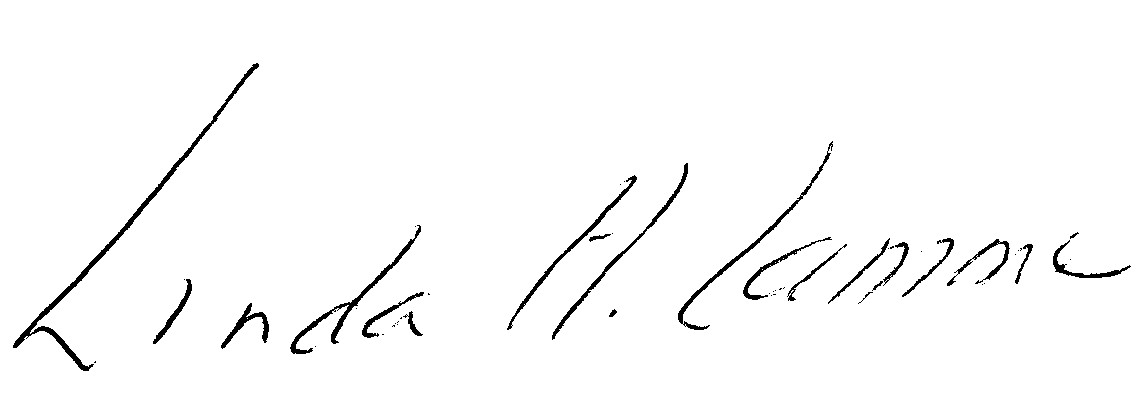 Linda H. Lamme